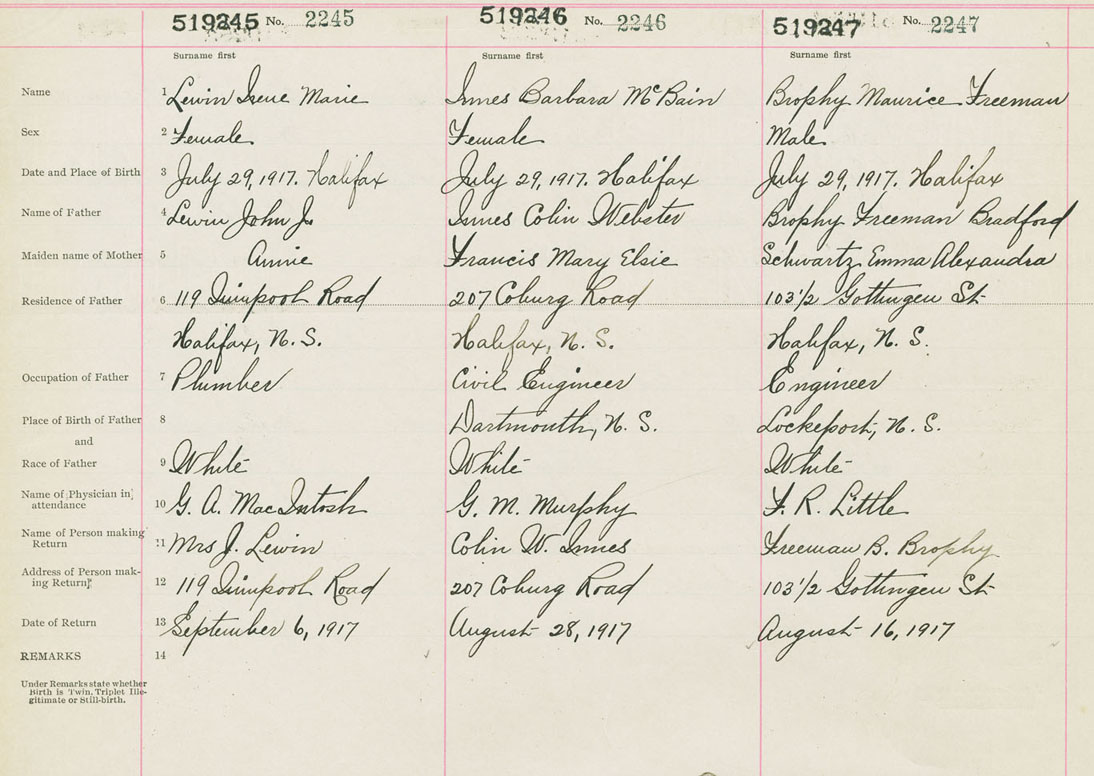 519245 No. 2245 519246 No. 2246 519247 No. 2247
Surname first Surname first Surname first
Name 1 Lewin Irene Marie Innes Barbara McBain Brophy Maurice Freeman
Sex 2 Female Female Male
Date and Place of Birth 3 July 29, 1917. Halifax July 29, 1917. Halifax July 29, 1917. Halifax
Name of Father 4 Lewin John J. Innes Colin Webster Brophy Freeman Bradford
Maiden name of Mother 5 Annie Francis Mary Elsie Schwartz Emma Alexandra
Residence of Father 6 119 Quinpool Road 207 Coburg Road 103 1/2 Gottingen St
Halifax, N. S. Halifax, N. S. Halifax, N. S.
Occupation of Father 7 Plumber Civil Engineer Engineer
Place of Birth of Father 8 Dartmouth, N. S. Lockeport, N. S.
and
Race of Father 9 White White White
Name of Physician in
attendance 10 G. A. MacIntosh G. M. Murphy F. R. Little
Name of Person making
Return 11 Mrs J. Lewin Colin W. Innes Freeman B. Brophy
Address of Person mak-
ing Return 12 119 Quinpool Road 207 Coburg Road 103 1/2 Gottingen St
Date of Return 13 September 6, 1917 August 28, 1917 August 16, 1917
REMARKS 14
Under Remarks state whether
Birth is Twin, Triplet Ille-
gitimate or Still-birth.